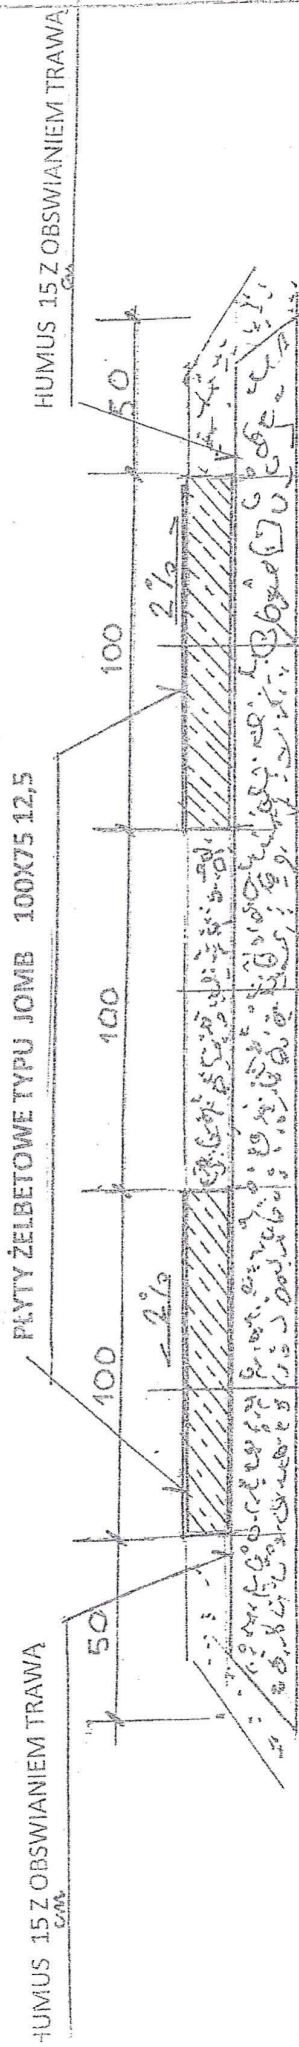 HUMUS 15 Z OBSWIANIEM TRAWĄ
cm
PŁYTY ŻELBETOWE TYPU JOMB 100X75 12,5
HUMUS 15 Z OBSWIANIEM TRAWĄ
cm
50
100
100
100
50
2%
2%